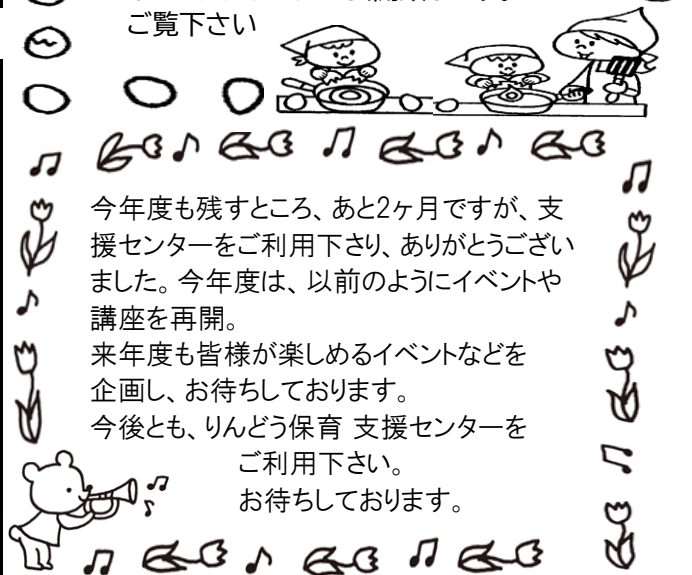 ご覧下さい
今年度も残すところ、あと2ヶ月ですが、支
援センターをご利用下さり、ありがとうござい
ました。今年度は、以前のようにイベントや
講座を再開。
来年度も皆様が楽しめるイベントなどを
企画し、お待ちしております。
今後とも、りんどう保育 支援センターを
ご利用下さい。
お待ちしております。